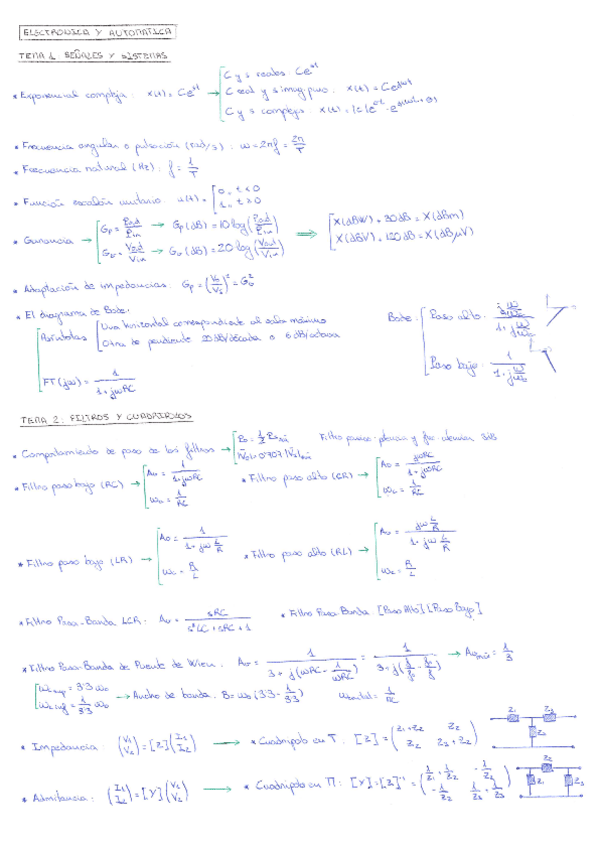 ELECTRÓNICA Y AUTOMÁTICA
TEMA 1. SEÑALES Y SISTEMAS
* Exponencial compleja: x(t) = Ce^{st} → C y s reales: Ce^{st}
C real y s imag. puro: x(t) = Ce^{jωt}
C y s complejos: x(t) =
* Frecuencia angular o pulsación (rad/s): ω = 2πf = 2π/T
* Frecuencia natural (Hz): f = 1/T
* Función escalón unitario: u(t) = 0, t < 0
1, t > 0
* Ganancia → Gp = Pout/Pin → Gp (dB) = 10 log (Pout/Pin) ⇒ X(dBW) + 30dB = X(dBm)
Gv = Vout/Vin → Gv (dB) = 20 log (Vout/Vin) X(dBV) + 120dB = X(dBμV)
* Adaptación de impedancias: Gp = (V2/V1)² = Gv²
* El diagrama de Bode:
Asíntotas Una horizontal correspondiente al valor máximo
Otra de pendiente 20 dB/década o 6 dB/octava
FT(jω) = 1/(1+jωRC)
Bode: Paso alto: (j ω/ω0)/(1+j ω/ω0)
Paso bajo: 1/(1+j ω/ω0)
TEMA 2: FILTROS Y CUADRIPOLOS
* Comportamiento de paso de los filtros → Po = 1/2 Pomáx
Vo = 0'707 Vomáx
Filtro
* Filtro paso bajo (RC) → Av = 1/(1+jωRC)
ωc = 1/RC
* Filtro paso alto (CR) → Av = jωRC/(1+jωRC)
ωc = 1/RC
* Filtro paso bajo (LR) → Av = 1/(1+jω L/R)
ωc = R/L
* Filtro paso alto (RL) → Av = (jω L/R)/(1+jω L/R)
ωc = R/L
* Filtro Pasa-Banda LCR: Av = sRC/(s²LC+sRC+1)
* Filtro Pasa Banda [Paso Alto][Paso Bajo]
* Filtro Pasa-Banda de Puente de Wien: Av = 1/(3+j(ωRC - 1/ωRC)) = 1/(3+j(f/f0 - f0/f)) → Avmáx = 1/3
ωc sup = 3'3 ω0
ωc inf = 1/3'3 ω0 → Ancho de banda: B = ω0 (3'3 - 1/3'3) ωcentral = 1/RC
* Impedancia: (V1 V2) = [Z](I1 I2) → * Cuadripolo en T: [Z] = (Z1+Z2 Z2
Z2 Z2+Z3)
Z1 Z3
Z2
* Admitancia: (I1 I2) = [Y](V1 V2) → * Cuadripolo en Π: [Y] = [Z]⁻¹ = (1/Z1+1/Z2 -1/Z2
-1/Z2 1/Z2+1/Z3)
Z2
Z1 Z3